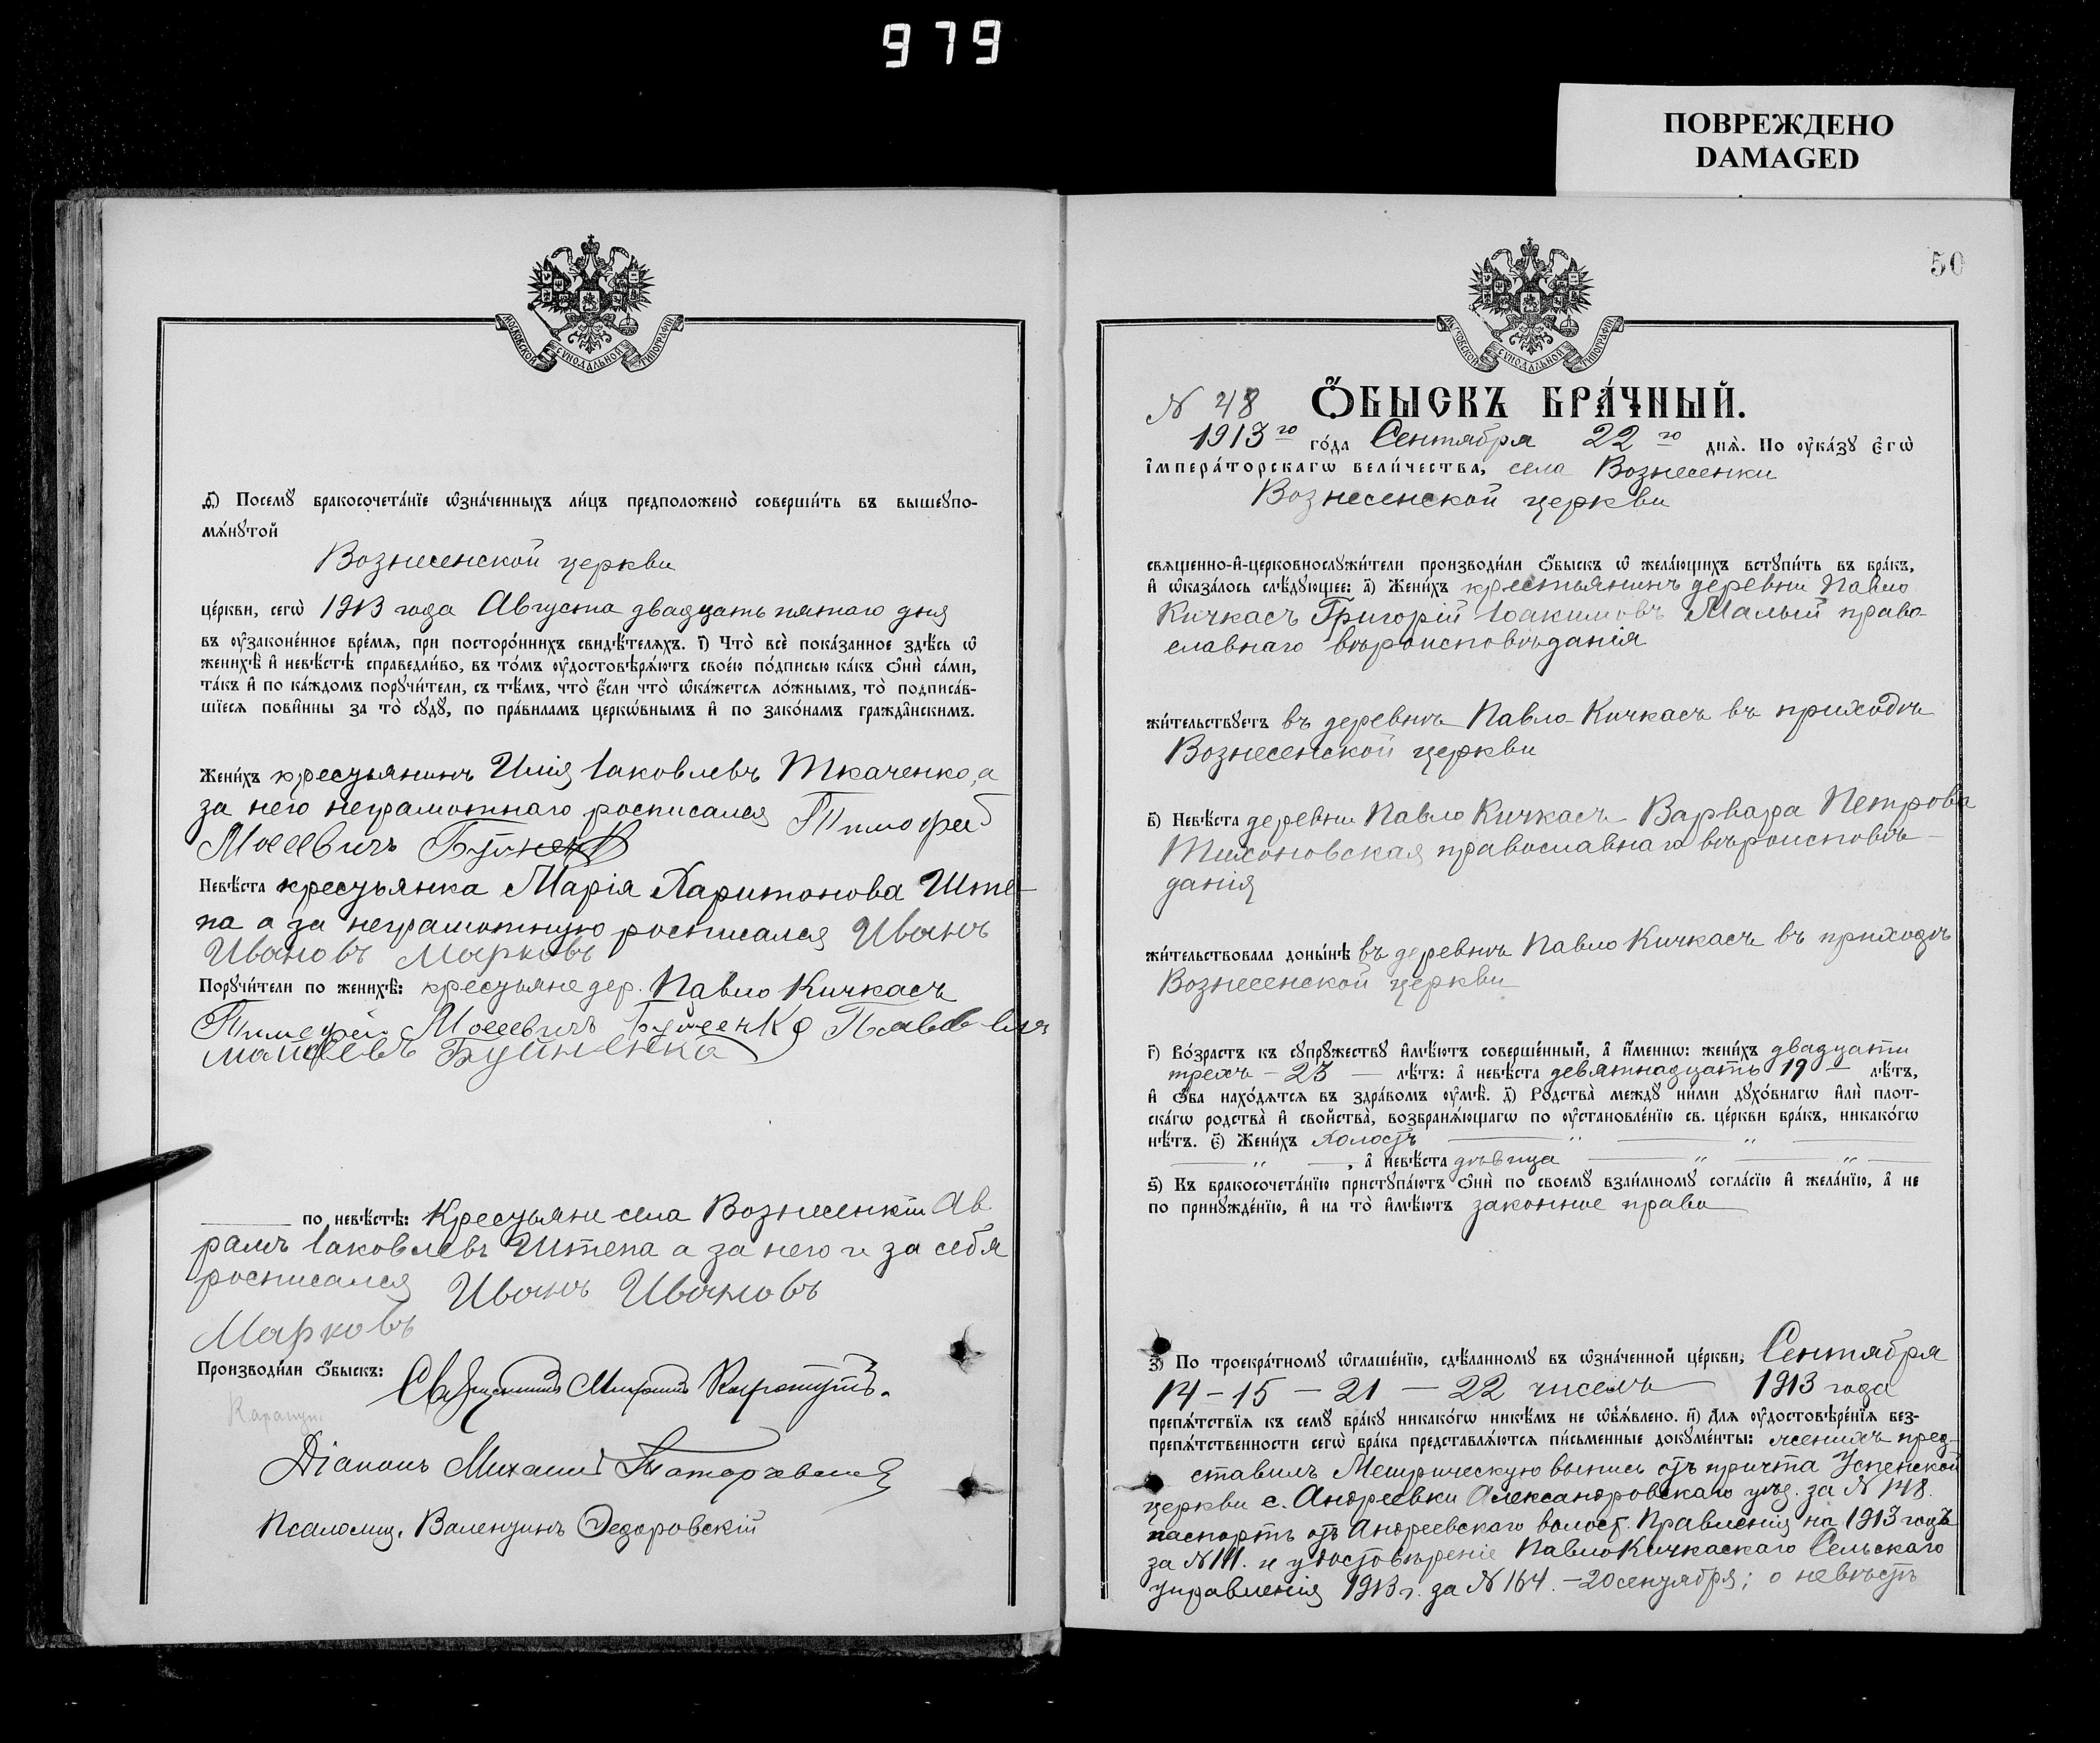 979
ПОВРЕЖДЕНО
DAMAGED
МОСКОВСКОЙ СѴНОДАЛЬНОЙ ТИПОГРАФІИ
д҃і) Посемꙋ̀ бракосочета́нїе ѡ҆зна́ченныхъ ли́цъ предположено̀ соверши́ть въ вышеꙋпо-
мѧ́нꙋтой
Вознесенской церкви
це́ркви, сегѡ̀ 1913 года Августа двадцать пятаго дня
въ ᲂу҆зако́ненное вре́мѧ, при посторо́ннихъ свидѣ́телѧхъ. і҃) Что̀ всѐ пока́занное здѣ́сь ѡ҆
женихѣ̀ и҆ невѣ́стѣ справедли́во, въ то́мъ ᲂу҆достовѣрѧ́ютъ свое́ю по́дписью ка́къ ѻ҆нѝ са́ми,
та́къ и҆ по ка́ждомъ порꙋчи́тели, съ тѣ́мъ, что̀ є҆́сли что̀ ѡ҆ка́жетсѧ ло́жнымъ, то̀ подписа́в-
шїесѧ пови́нны за то̀ сꙋдꙋ̀, по пра́виламъ церко́внымъ и҆ по зако́намъ гражда́нскимъ.
Жени́хъ крестьянинъ Илія Іаковлевъ Ткаченко, а
за него неграмотнаго росписался Тимофей
Мосеевичъ
Невѣ́ста крестьянка Марія Харитонова Ште-
па а за неграмотную росписался Иванъ
Ивановъ Марковъ
Порꙋчи́тели по женихѣ̀: крестьяне дер. Павло Кичкасъ
Тимофей Мосеевичъ Буйненко Павелъ
Буйненко
по невѣ́стѣ: Крестьяне села Вознесенки Ав
рамъ Іаковлевъ Штепа а за него и за себя
росписался Иванъ Ивановъ
Марковъ
Производи́ли ѻ҆́быскъ: Священникъ Михаилъ Карапутъ.
Діаконъ Михаилъ
Псаломщ. Валентинъ Федоровскій
50
МОСКОВСКОЙ СѴНОДАЛЬНОЙ ТИПОГРАФІИ
N 48 Ѻ҆́БЫСКЪ БРА́ЧНЫЙ.
1913 го го́да Сентября 22 го днѧ̀. По ᲂу҆ка́зꙋ є҆гѡ̀
і҆мпера́торскагѡ вели́чества, села Вознесенки
Вознесенской церкви
свѧщенно-и҆-церковнослꙋжи́тели производи́ли ѻ҆́быскъ ѡ҆ жела́ющихъ встꙋпи́ть въ бра́къ,
и҆ ѡ҆каза́лось слѣ́дꙋющее: а҃) Жени́хъ крестьянинъ деревни Павло
Кичкасъ Григорій Іоакимовъ Малый право-
славнаго вѣроисповѣданія
жи́тельствꙋетъ въ деревнѣ Павло-Кичкасъ въ приходѣ
Вознесенской церкви
в҃) Невѣ́ста деревни Павло Кичкасъ Варвара Петрова
Тихоновская православнаго вѣроисповѣ-
данія
жи́тельствовала доны́нѣ въ деревнѣ Павло Кичкасъ въ приходѣ
Вознесенской церкви
г҃) Во́зрастъ къ сꙋпрꙋ́жествꙋ и҆мѣ́ютъ соверше́нный, а҆ и҆́меннѡ: жени́хъ двадцати
трехъ - 23 — лѣ́тъ: а҆ невѣ́ста девятнадцать 19 — лѣ́тъ,
и҆ ѻ҆́ба нахо́дѧтсѧ въ здра́вомъ ᲂу҆мѣ̀. д҃) Родства̀ междꙋ ни́ми дꙋхо́внагѡ и҆лѝ плот-
ска́гѡ родства̀ и҆ свойства̀, возбранѧ́ющагѡ по ᲂу҆становле́нїю св. це́ркви бра́къ, никако́гѡ
нѣ́тъ. є҃) Жени́хъ Холостъ — „ — „ —
— „ —, а҆ невѣ́ста дѣвица — „ — „ —
ѕ҃) Къ бракосочета́нїю пристꙋпа́ютъ ѻ҆нѝ по своемꙋ̀ взаи́мномꙋ согла́сїю и҆ жела́нїю, а҆ не
по принꙋжде́нїю, и҆ на то̀ и҆мѣ́ютъ законное право
з҃) По троекра́тномꙋ ѡ҆глаше́нїю, сдѣ́ланномꙋ въ ѡ҆зна́ченной це́ркви, Сентября
14 - 15 - 21 - 22 чиселъ — 1913 года
препѧ́тствїѧ къ семꙋ̀ бра́кꙋ никако́гѡ никѣ́мъ не ѡ҆б̾ѧ́влено. и҃) Длѧ ᲂу҆достовѣре́нїѧ без-
препѧ́тственности сегѡ̀ бра́ка представлѧ́ютсѧ пи́сьменные докꙋме́нты: женихъ пред-
ставилъ Метрическую выпись отъ причта Успенской
церкви с. Андреевки Александровскаго уѣз. за N 148.
паспортъ отъ Андреевскаго волост. Правленія на 1913 годъ
за N 111. и удостовѣреніе ПавлоКичкаскаго Сельскаго
управленія 1913 г. за N 164. - 20 сентября; о невѣстѣ